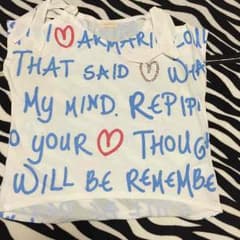 I ♡ AKMARI
THAT SAID ♡ WHA
MY MIND. REPIPI
O YOUR ♡ THOUG
WILL BE REMEMBE